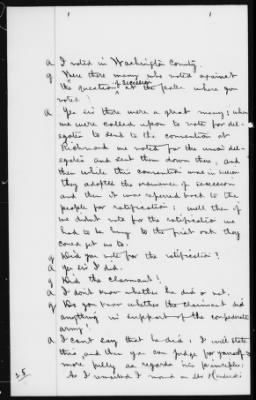 a I voted in Washington County.
q Were there many who voted against
of secession
the question at the polls where you
voted?
a Yes sir there were a great many; when
we were called upon to vote for del-
egates to send to the convention at
Richmond we voted for the union del-
egates and sent them down there, and
then while this convention was in session
they adopted the ordinance of secession
and then it was referred back to the
people for ratification; well then if
we didnt vote for the ratification we
had to be hung to the first oak they
could get us to.
q Did you vote for the ratification?
a Yes sir I did.
q Did the claimant?
a I dont know whether he did or not.
q Do you know whether the claimant did
anything in support of the confederate
army?
a I cant say that he did; I will state
this, and then you can judge for yourself
more fully as regards his principles;
As I remarked I moved on Mr